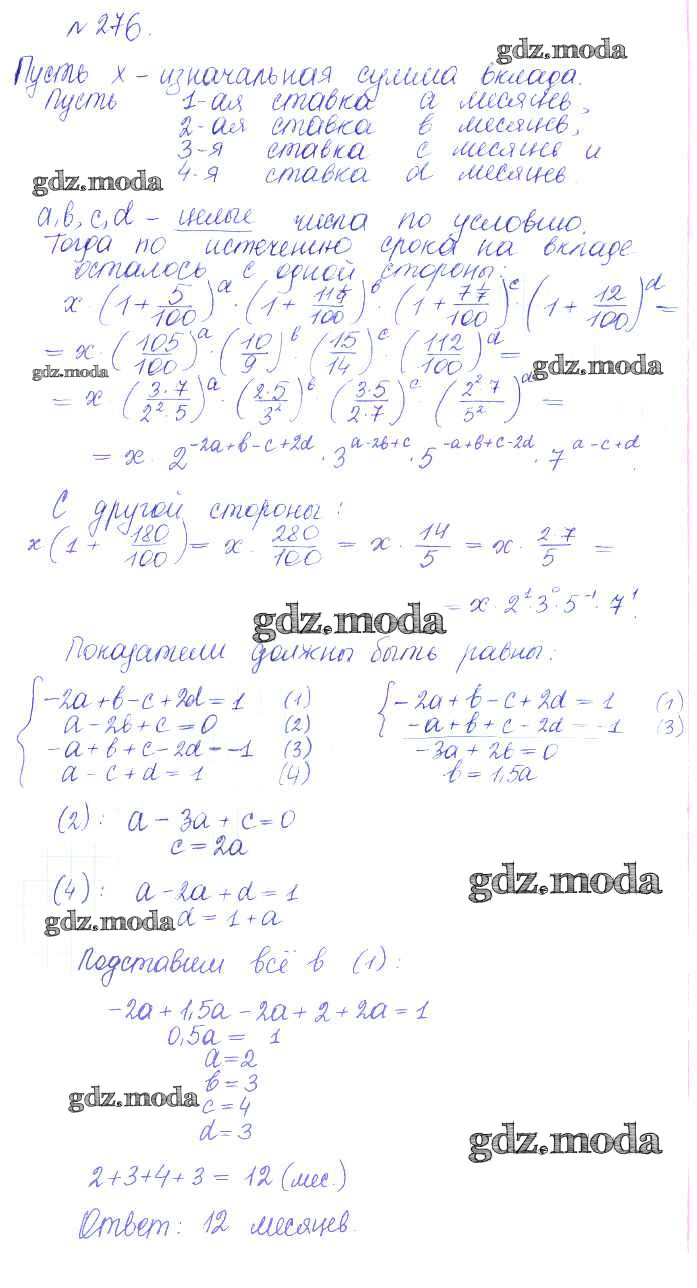 № 276.
gdz.moda
Пусть x – изначальная сумма вклада.
Пусть 1-ая ставка a месяцев,
2-ая ставка b месяцев,
3-я ставка c месяцев и
gdz.moda 4-я ставка d месяцев
a, b, c, d – целые числа по условию.
Тогда по истечению срока на вкладе
осталось с одной стороны:
x · (1 + 5/100)^a · (1 + 11 1/9/100)^b · (1 + 7 1/7/100)^c · (1 + 12/100)^d =
= x · (105/100)^a · (10/9)^b · (15/14)^c · (112/100)^d =
gdz.moda gdz.moda
= x (3·7/2²·5)^a · (2·5/3²)^b · (3·5/2·7)^c · (2²·7/5²)^d =
= x · 2^(-2a+b-c+2d) · 3^(a-2b+c) · 5^(-a+b+c-2d) · 7^(a-c+d)
С другой стороны:
x (1 + 180/100) = x · 280/100 = x · 14/5 = x · 2·7/5 =
= x · 2¹ · 3⁰ · 5⁻¹ · 7¹.
gdz.moda
Показатели должны быть равны:
{ -2a + b - c + 2d = 1 (1)
a - 2b + c = 0 (2)
-a + b + c - 2d = -1 (3)
a - c + d = 1 (4)
{ -2a + b - c + 2d = 1 (1)
-a + b + c - 2d = -1 (3)
-3a + 2b = 0
b = 1,5a
(2): a - 3a + c = 0
c = 2a
gdz.moda
(4): a - 2a + d = 1
gdz.moda d = 1 + a
Подставим всё в (1):
-2a + 1,5a - 2a + 2 + 2a = 1
0,5a = 1
a = 2
b = 3
gdz.moda c = 4
d = 3
gdz.moda
2 + 3 + 4 + 3 = 12 (мес.)
Ответ: 12 месяцев.